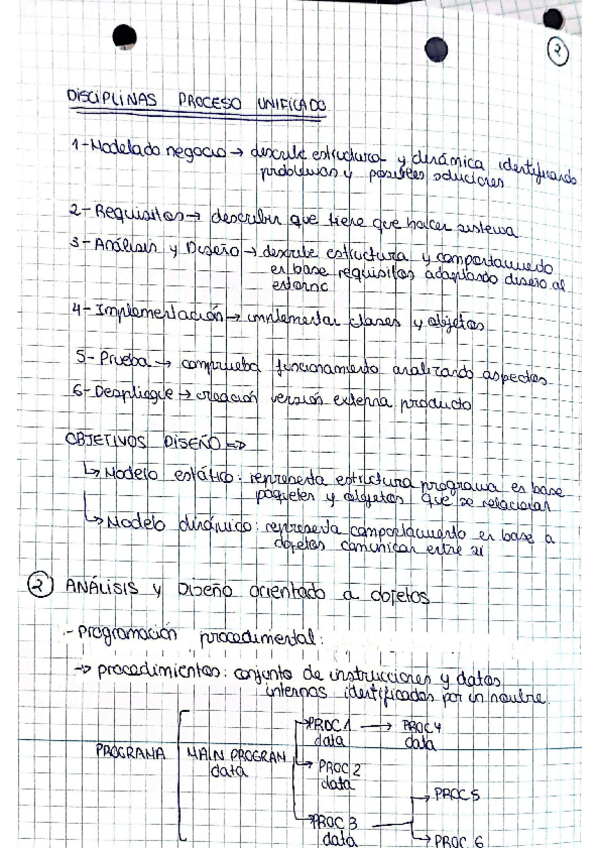 2
DISCIPLINAS PROCESO UNIFICADO
1-Modelado negocio → describe estructura y dinámica identificando
problemas y posibles soluciones
2-Requisitos → describir que tiene que hacer sistema
3-Análisis y Diseño → describe estructura y comportamiento
en base requisitos adaptando diseño al
entorno
4-Implementación → implementar clases y objetos
5-Prueba → comprueba funcionamiento analizando aspectos
6-Despliegue → creación versión externa producto
OBJETIVOS DISEÑO =>
↳ Modelo estático: representa estructura programa en base
paquetes y objetos que se relacionan
↳ Modelo dinámico: representa comportamiento en base a
objetos comunican entre sí
2 ANÁLISIS y Diseño orientado a objetos
- Programación procedimental:
→ procedimientos: conjunto de instrucciones y datos
internos identificados por un nombre.
PROC 1 → PROC 4
data data
PROGRAMA MAIN PROGRAN
data
→ PROC 2
data
→ PROC 5
PROC 3
data
→ PROC 6